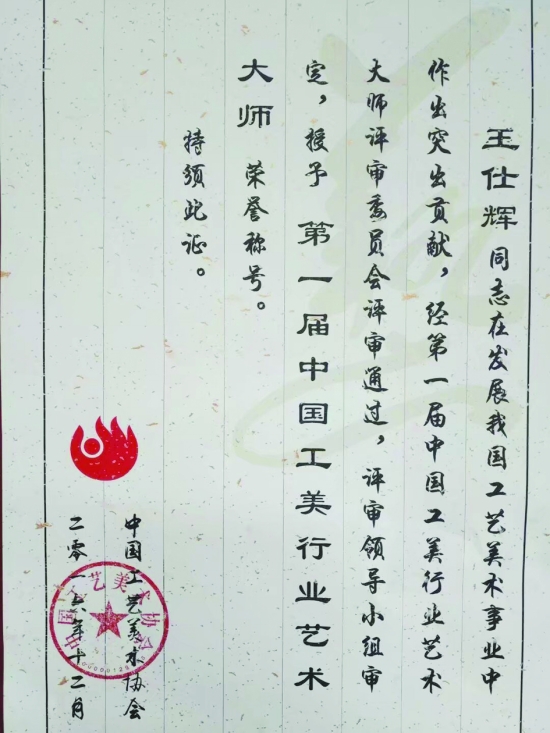 王仕辉同志在发展我国工艺美术事业中
作出突出贡献，经第一届中国工美行业艺术
大师评审委员会评审通过，评审领导小组审
定，授予 第一届中国工美行业艺术
大师 荣誉称号。
特颁此证。
中国工艺美术协会
二零一六年十二月
中国工艺美术协会